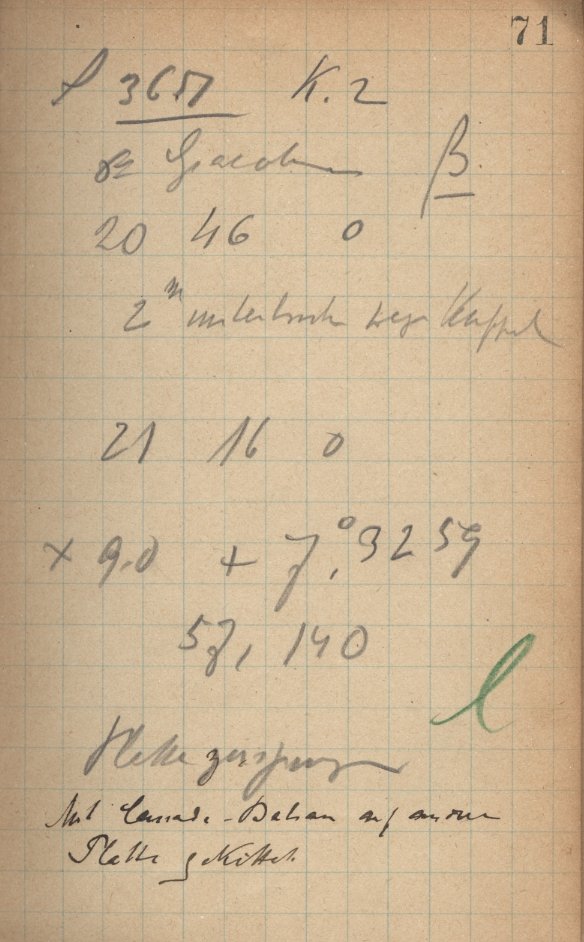 71
P 3651 K. 2
Giacobini β
20 46 0
2 m unterbroch wegen Kuppel
21 16 0
× 9.0 + 7,°3259
57, 140
Platte zersprungen
Mit Canada-Balsam auf andere
Platte gekittet